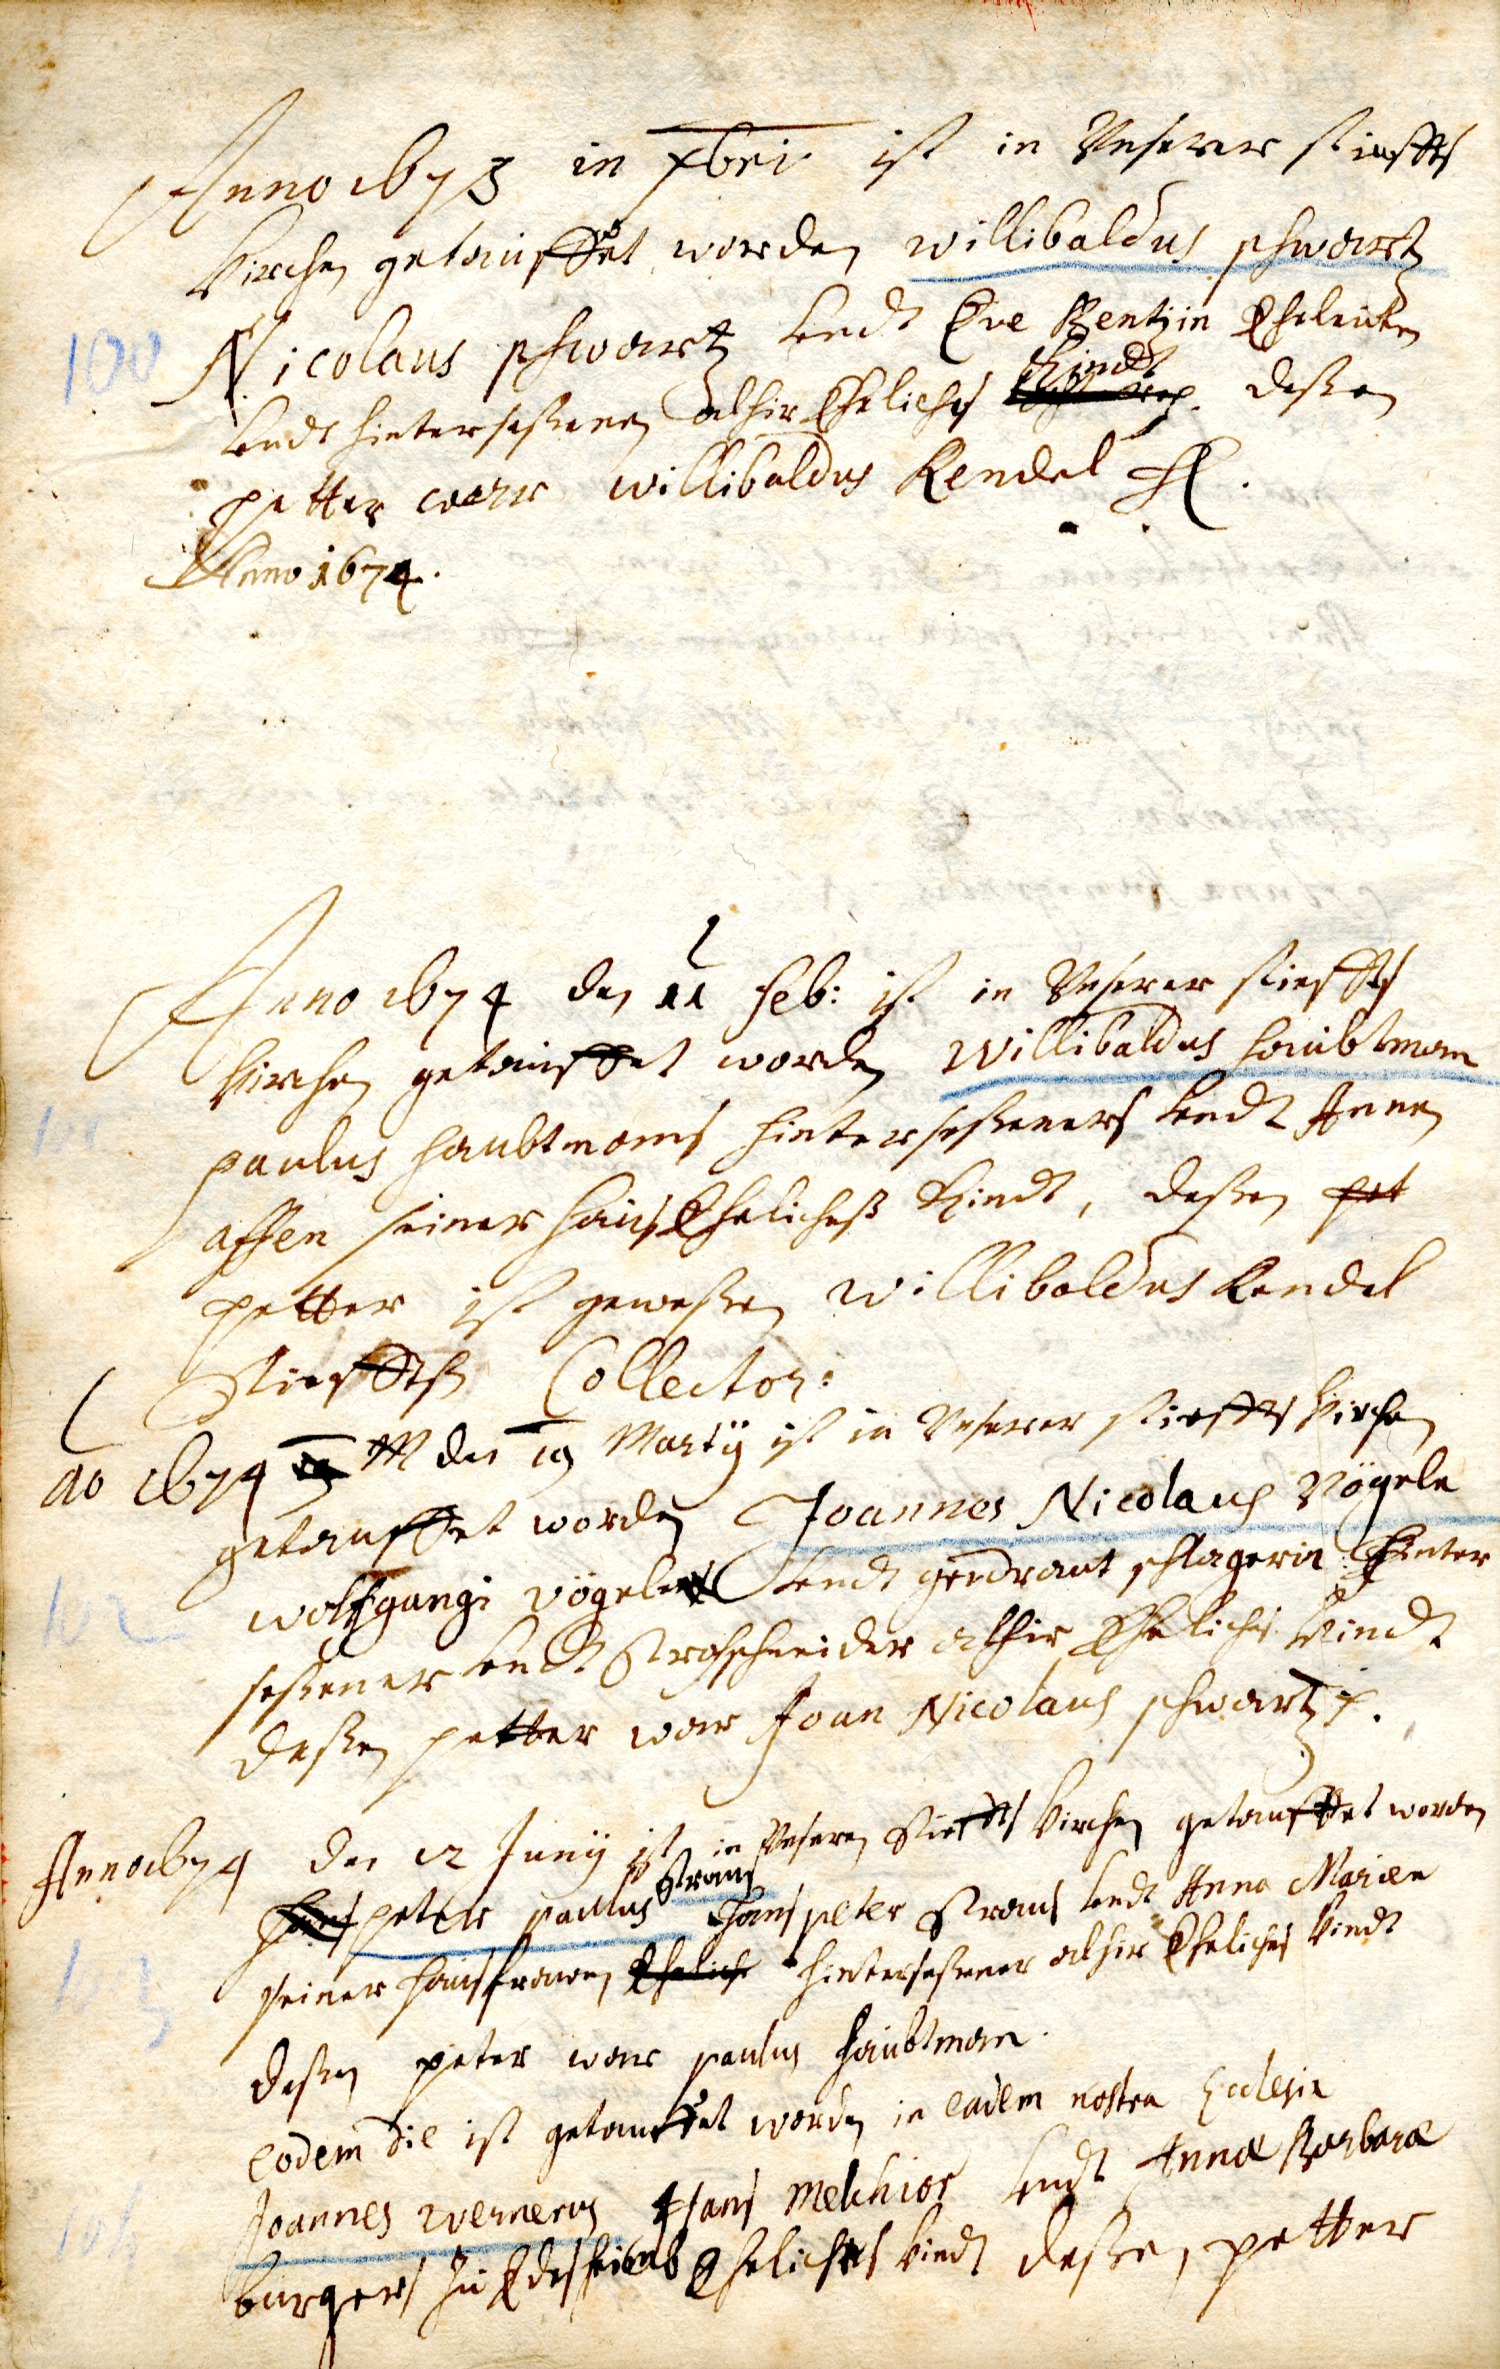 Anno 1673 in xbri ist in Unserer stieffts
Kirchen getauffet worden willibaldus schwartz
100
Nicolaus schwartz undt Eve Rentzin Eheleuten
undt hinterseßenen alhir Eheliches Kindt deßen
petter ware willibaldus Rendel
Anno 1674.
Anno 1674 den 11 Feb: ist in Unserer stieffts
Kirchen getauffet worden Willibaldus haubtman
101
paulus haubtmans hinterseßeners undt Annen
affen seiner haus Ehelicheß Kindt, deßen pet
petter ist geweßen Willibaldus Rendel
Stieffts Collector:
ao 1674 den 19 Martij ist in Unserer stieffts Kirchen
getauffet worden Joannes Nicolaus Vögele
102
wolfgangi vögele undt gerdraut schlagerin Hinter
seßener undt Strohschneider alhir Eheliches Kindt
deßen petter war Joan Nicolaus schwartz p.
Anno 1674 den 12 Junij ist in Unseren Stieffts Kirchen getauffet worden
Hans peter paulus Straus Hans peter Straus undt Anna Mariæ
103
seiner hausfrawen Ehelich hinterseßener alhir Eheliches Kindt
deßen peter ware paulus haubtman.
Eodem die ist getauffet worden in eadem nostra Ecclesia
104
Joannes wernerus Hans Melchior undt Anna Barbara
burgers zu Edesheimb Eheliches Kindt deßen petter